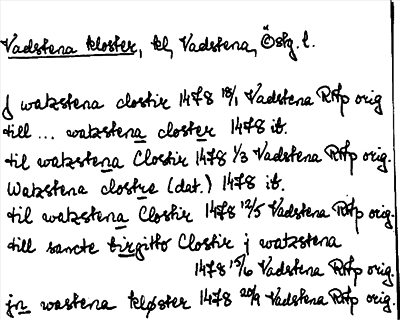 Vadstena kloster, kl, Vadstena, Östg. l.
J watzstena clostir 1478 18/1 Vadstena RAp orig
till ... watzstena closter 1478 ib.
til watzstena Clostir 1478 1/3 Vadstena RAp orig.
Watzstena clostre (dat.) 1478 ib.
til watzstena Clostir 1478 12/5 Vadstena RAp orig.
till sancte birgitto Clostir j watzstena
1478 15/6 Vadstena RAp orig.
jn wastena kløster 1478 20/9 Vadstena RAp orig.